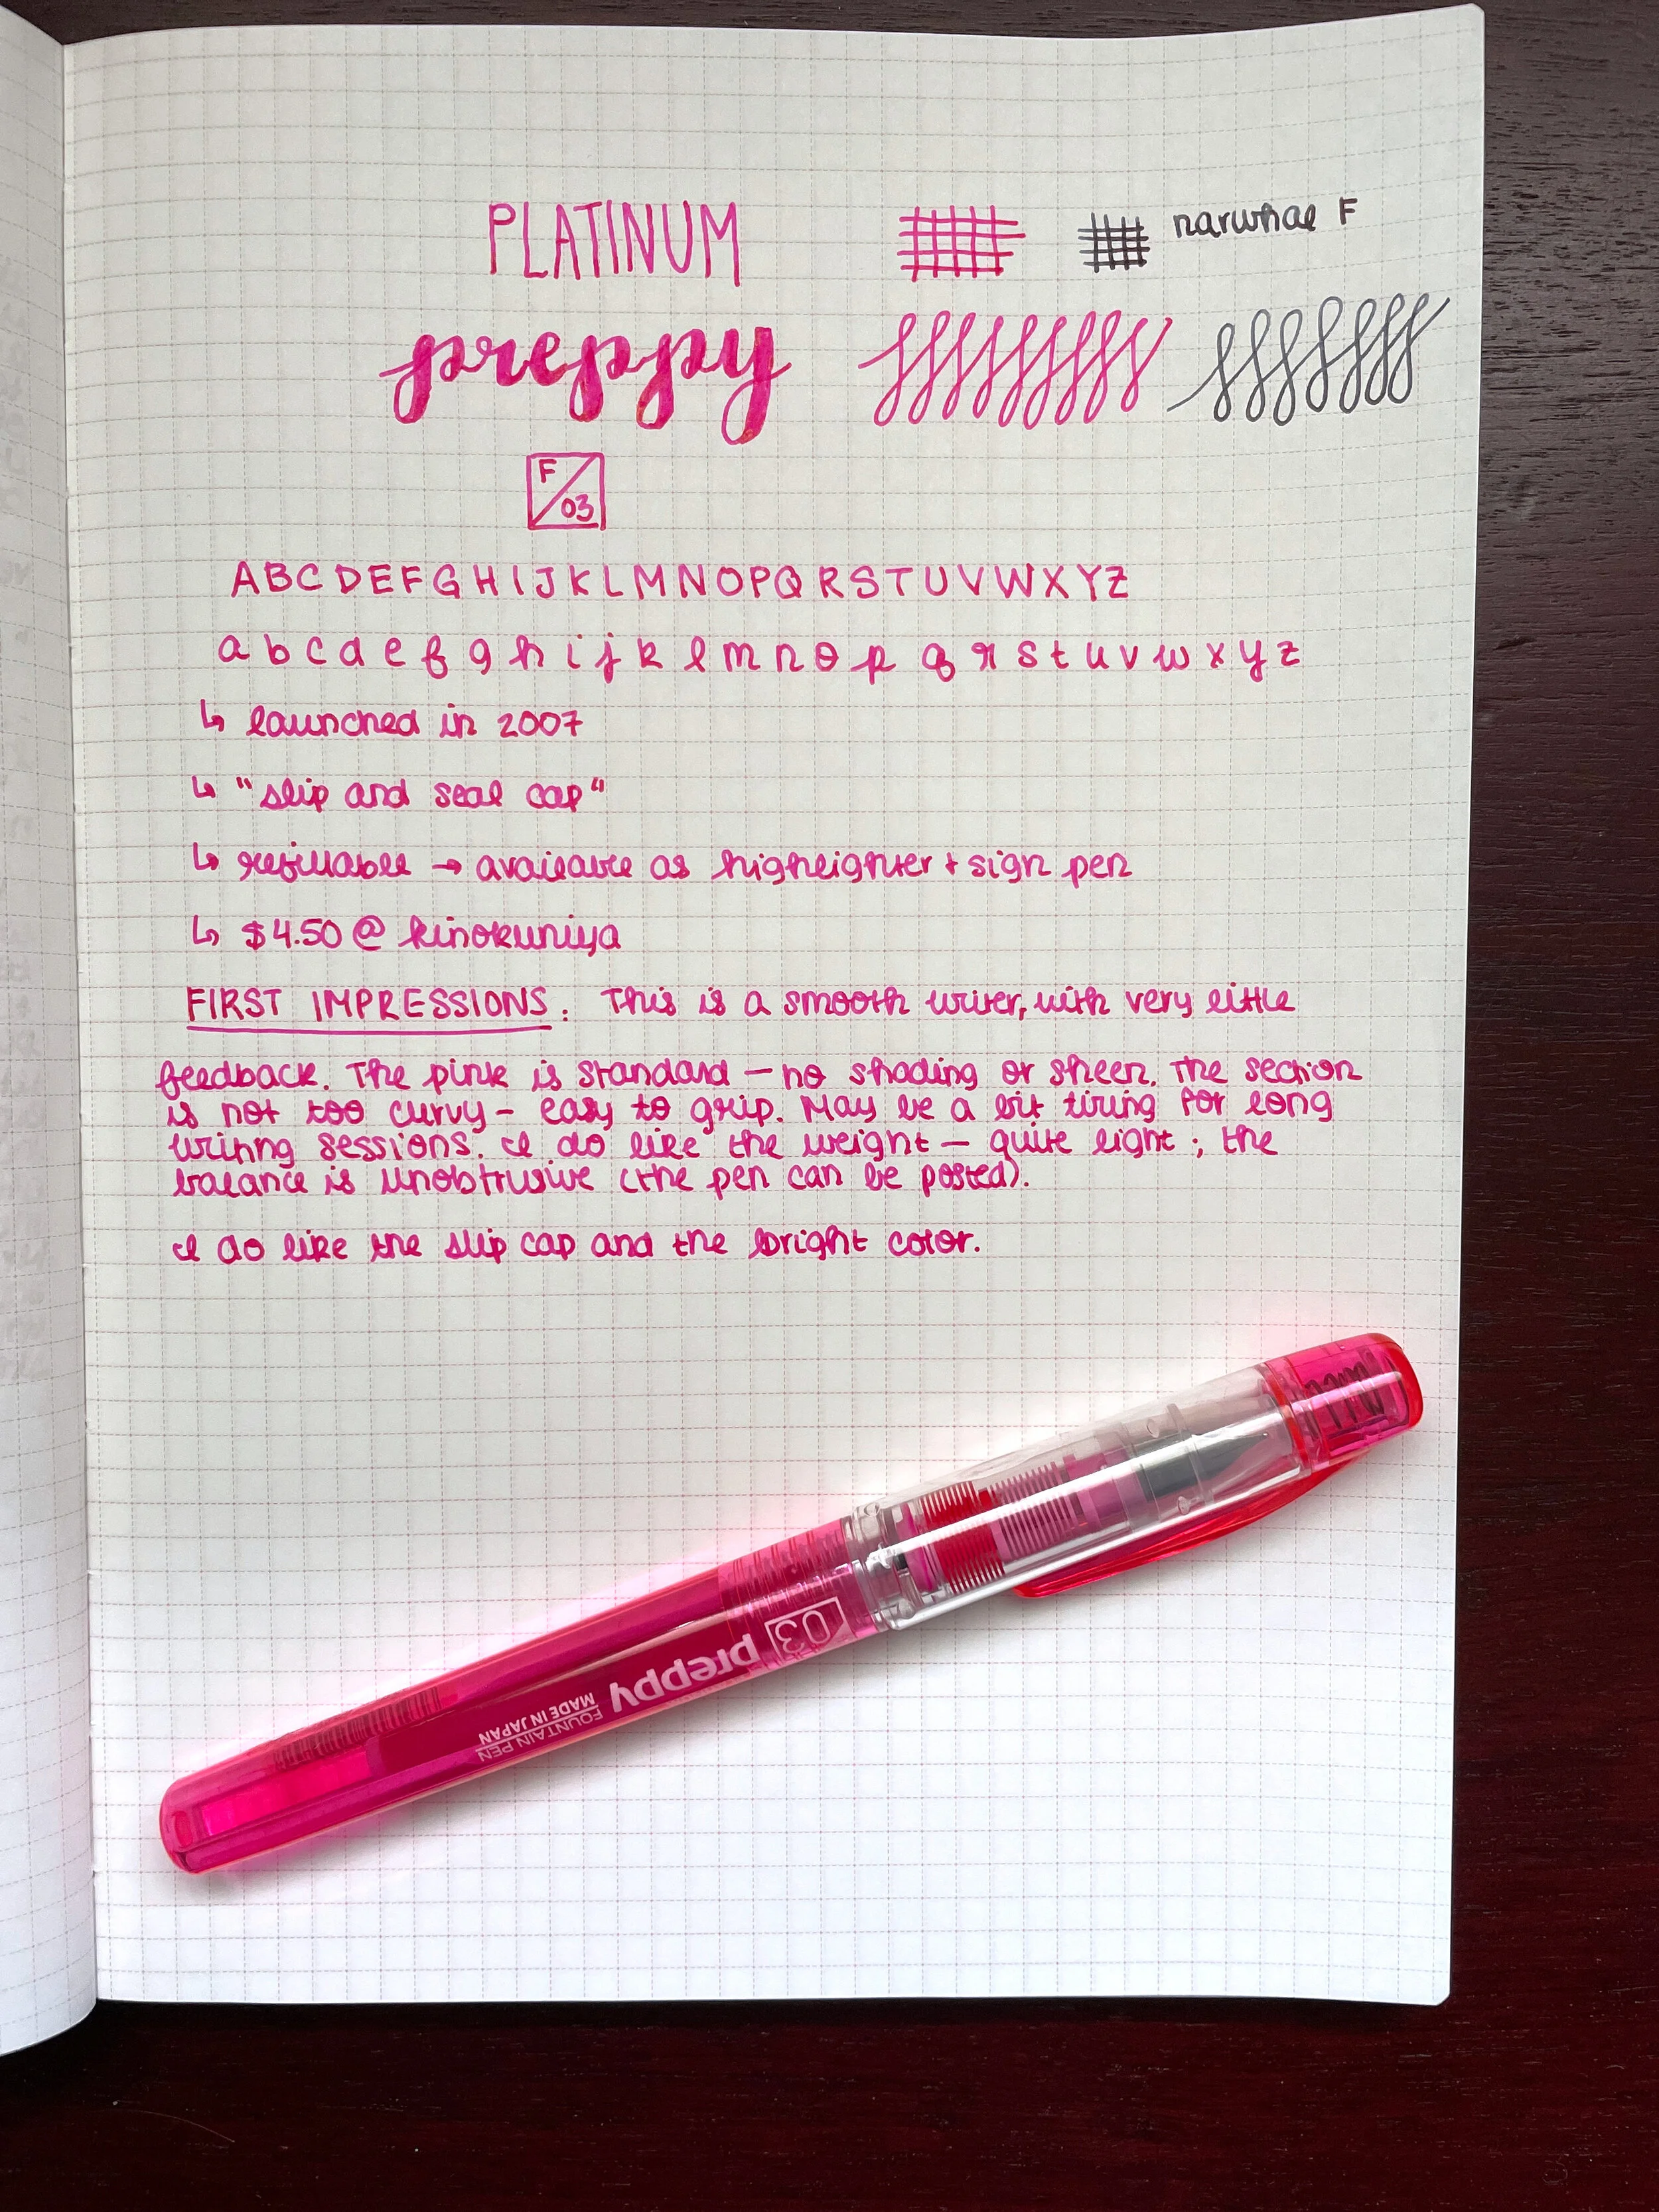 PLATINUM
narwhal F
preppy
F/03
ABCDEFGHIJKLMNOPQRSTUVWXYZ
abcdefghijklmnopqrstuvwxyz
↳ launched in 2007
↳ "slip and seal cap"
↳ refillable → available as highlighter + sign pen
↳ $4.50 @ kinokuniya
FIRST IMPRESSIONS: This is a smooth writer, with very little
feedback. The pink is standard — no shading or sheen. The section
is not too curvy - easy to grip. May be a bit tiring for long
writing sessions. I do like the weight — quite light; the
balance is unobtrusive (the pen can be posted).
I do like the slip cap and the bright color.
03
preppy
FOUNTAIN PEN
MADE IN JAPAN